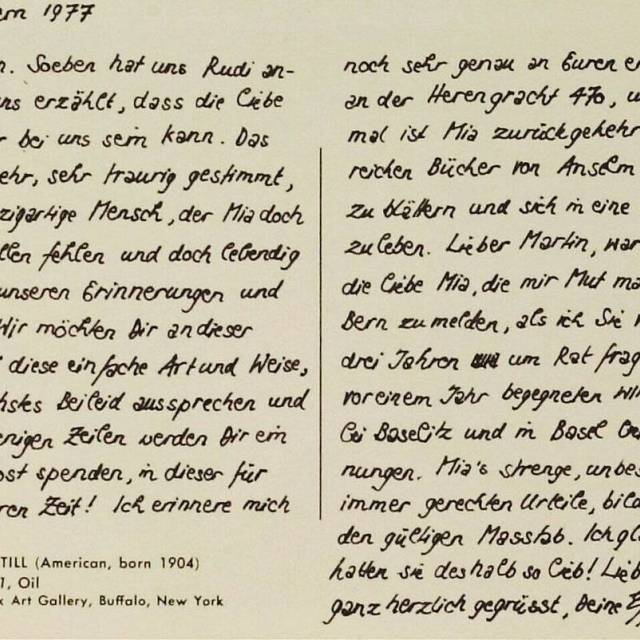 ern 1977
n. Soeben hat uns Rudi an-
ns erzählt, dass die Liebe
r bei uns sein kann. Das
ehr, sehr traurig gestimmt,
zigartige Mensch, der Mia doch
llen fehlen und doch lebendig
unseren Erinnerungen und
Wir möchten Dir an dieser
diese einfache Art und Weise,
chstes Beileid aussprechen und
enigen Zeilen werden Dir ein
ost spenden, in dieser für
ren Zeit! Ich erinnere mich
TILL (American, born 1904)
1, Oil
x Art Gallery, Buffalo, New York
noch sehr genau an Euren er
an der Herengracht 470, u
mal ist Mia zurückgekehr
reichen Bücher von Anselm
zu blättern und sich in eine
zu leben. Lieber Martin, war
die Liebe Mia, die mir Mut ma
Bern zu melden, als ich Sie
drei Jahren um Rat frag
vor einem Jahr begegneten wir
bei Baselitz und in Basel
nungen. Mia's strenge, unbes
immer gerechten Urteile, bild
den gültigen Masstab. Ich gl
hatten sie deshalb so lieb! Lieb
ganz herzlich gegrüsst, Deine